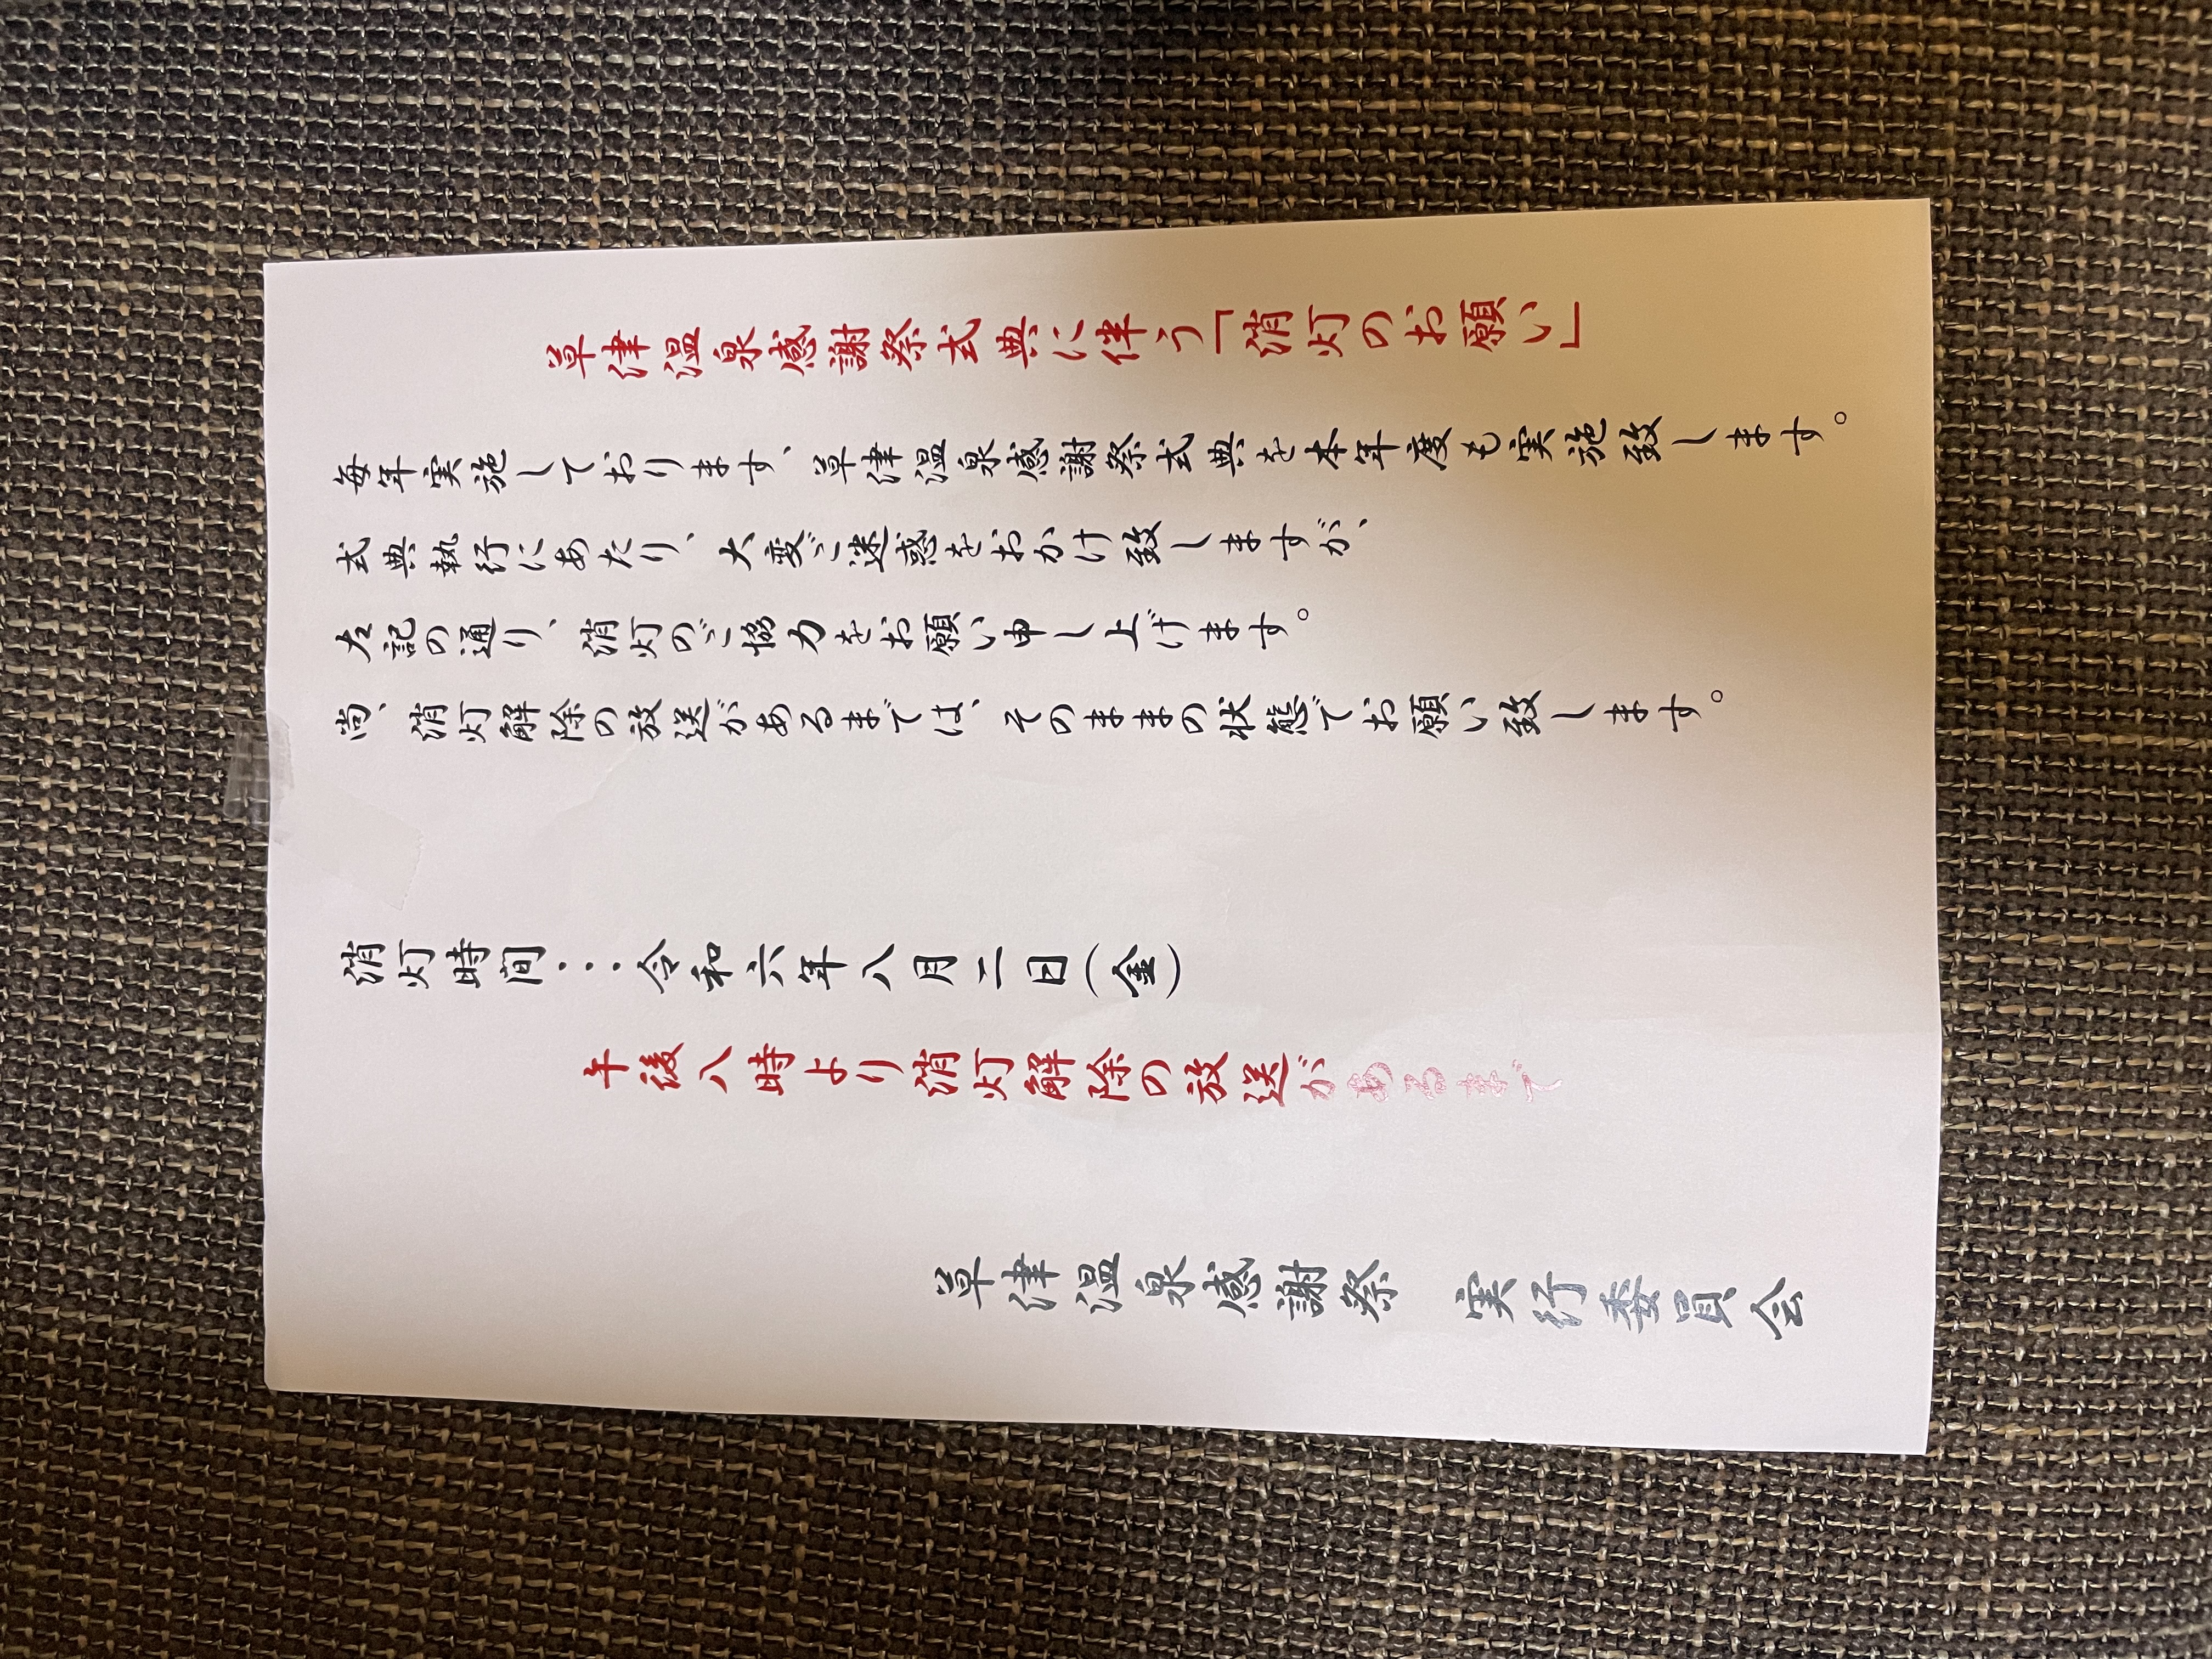 草津温泉感謝祭式典に伴う「消灯のお願い」
毎年実施しております、草津温泉感謝祭式典を本年度も実施致します。
式典執行にあたり、大変ご迷惑をおかけ致しますが、
左記の通り、消灯のご協力をお願い申し上げます。
尚、消灯解除の放送があるまでは、そのままの状態でお願い致します。
消灯時間・・・令和六年八月二日(金)
午後八時より消灯解除の放送があるまで
草津温泉感謝祭　実行委員会